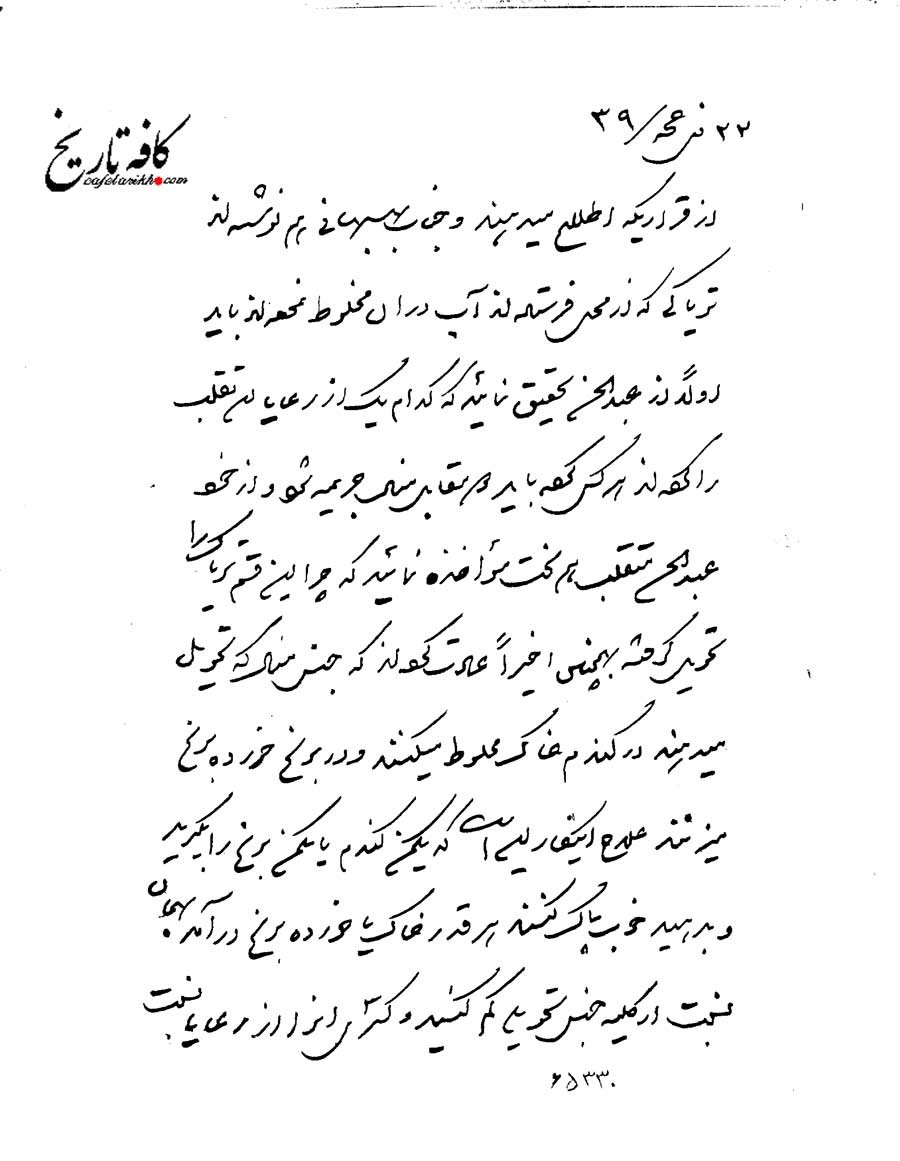 کافه تاریخ
cafetarikh.com
۲۲ ذی حجه/ ۳۹
از قراریکه اطلاع میدهند و جناب بهبهانی هم نوشته‌اند
تریاکی که از محل فرستاده‌اند آب در آن مخلوط نموده‌اند باید
اولاً از عبدالحسن تحقیق نمائید که کدام یک از رعایا این تقلب
را کرده‌اند هر کس کرده باید در مقابل جریمه شود و از خود
عبدالحسن متقلب هم سخت مؤاخذه نمائید که چرا این قسم تریاک را
تحویل گرفته اخیراً عادت کرده‌اند که جنس که تحویل
میدهند در گندم خاک مخلوط میکنند و در برنج خورده برنج
میریزند علاج اینکار این است که یکمن گندم یا یکمن برنج را بگیرید
و بدهید خوب پاک کنند هر قدر خاک یا خورده برنج درآمد بهمان
نسبت از کلیه جنس تحویلی کم کنید و کسری آنرا از رعایا نسبت
۶۵۳۳۰